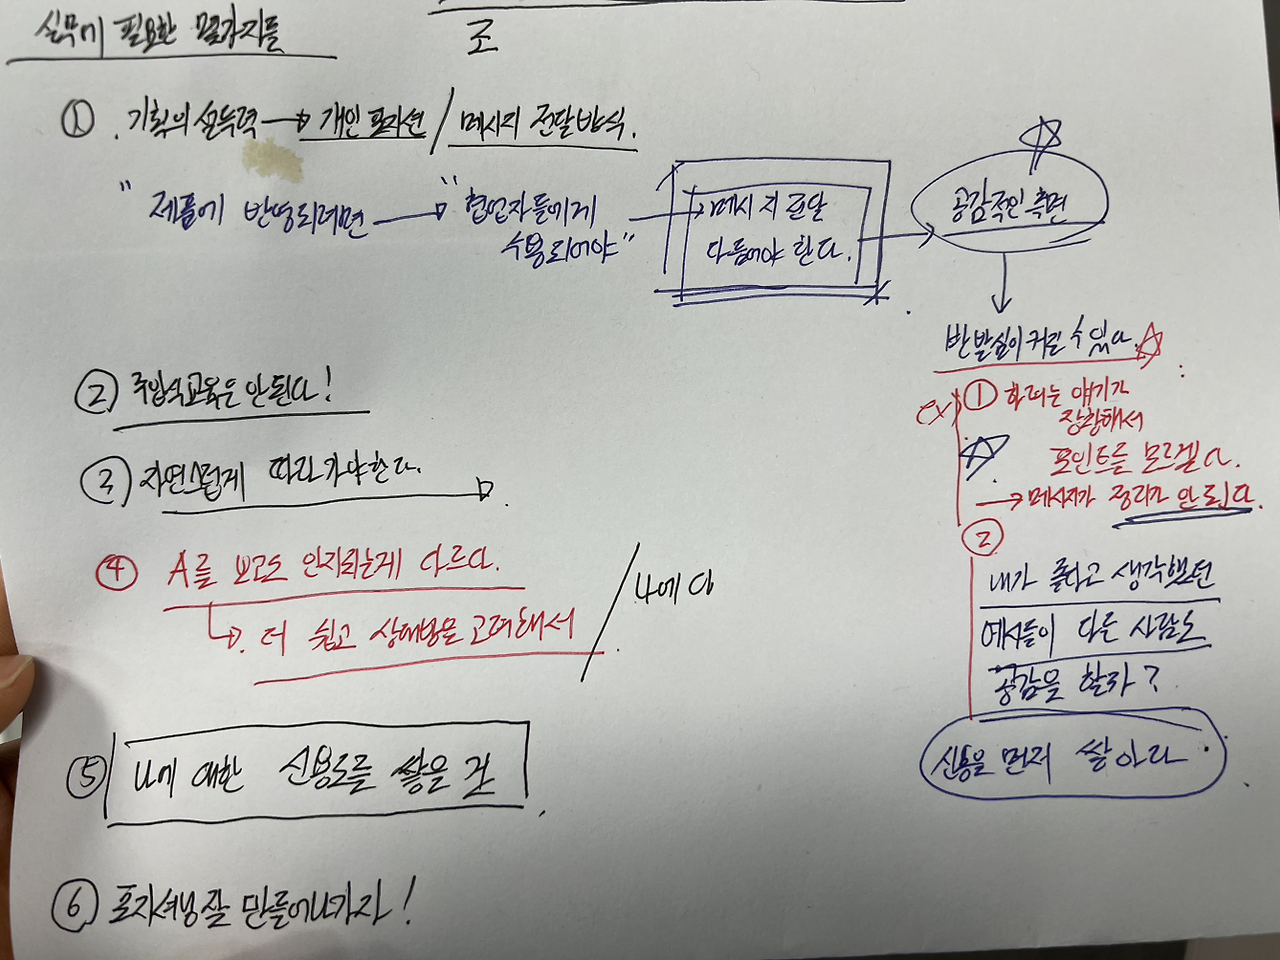 실무에 필요한 몇가지들
조
① . 기획의 설득력 → 개인 포지션 / 메시지 전달 방식.
" 제품에 반영되려면 → " 협업자들에게
수용되어야"
메시지 전달
다듬어야 한다.
공감적인 측면
반발심이 커질 수 있다.
② 주입식교육은 안된다!
ex) ① 하려는 얘기가
장황해서
포인트를 모르겠다.
→ 메시지가 정리가 안된다.
③ 자연스럽게 따라가야한다.
④ A를 보고도 인지되는게 다르다.
→ 더 쉽고 상대방을 고려해서
/ 나에 다
②
내가 옳다고 생각했던
예시들이 다른 사람도
공감을 할까?
신용을 먼저 쌓아라
⑤ 나에 대한 신용도를 쌓을 것
⑥ 포지셔닝 잘 만들어나가자!